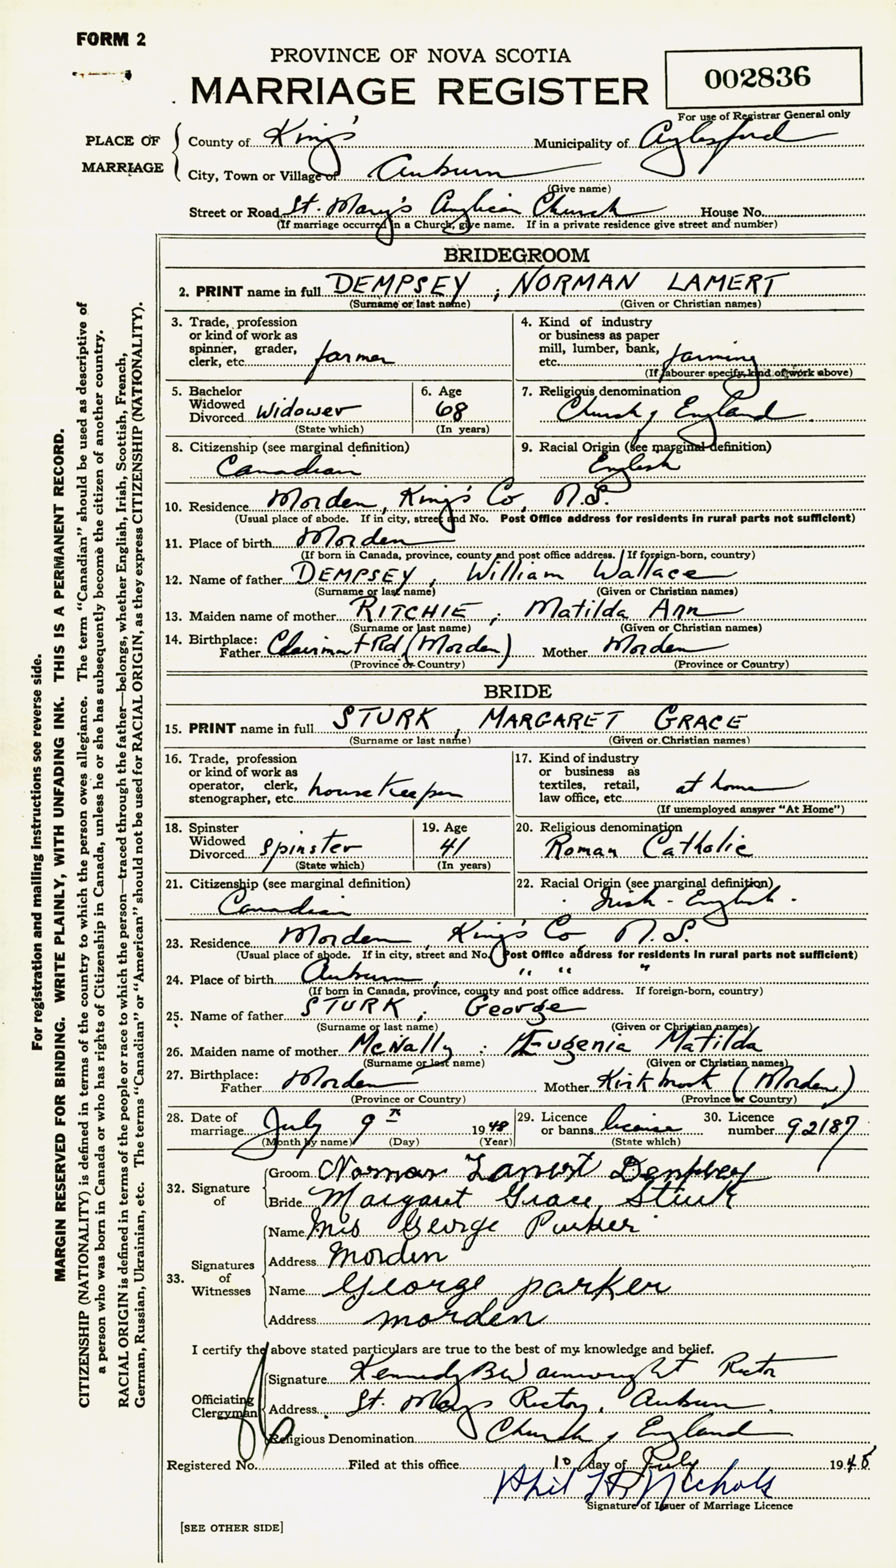 FORM 2
PROVINCE OF NOVA SCOTIA
MARRIAGE REGISTER
002836
For use of Registrar General only
PLACE OF MARRIAGE
County of King's Municipality of Aylesford
City, Town or Village of Auburn
(Give name)
Street or Road St. Mary's Anglican Church House No.
(If marriage occurred in a Church, give name. If in a private residence give street and number)
BRIDEGROOM
2. PRINT name in full DEMPSEY ; NORMAN LAMERT
(Surname or last name) (Given or Christian names)
3. Trade, profession or kind of work as spinner, grader, clerk, etc. farmer
4. Kind of industry or business as paper mill, lumber, bank, etc. farming
(If labourer specify kind of work above)
5. Bachelor Widowed Divorced Widower
(State which)
6. Age 68
(In years)
7. Religious denomination
Church of England
8. Citizenship (see marginal definition)
Canadian
9. Racial Origin (see marginal definition)
English
10. Residence Morden, King's Co, N.S.
(Usual place of abode. If in city, street and No. Post Office address for residents in rural parts not sufficient)
11. Place of birth Morden
(If born in Canada, province, county and post office address. If foreign-born, country)
12. Name of father DEMPSEY, William Wallace
(Surname or last name) (Given or Christian names)
13. Maiden name of mother RITCHIE ; Matilda Ann
(Surname or last name) (Given or Christian names)
14. Birthplace:
Father Rd (Morden) Mother Morden
(Province or Country) (Province or Country)
BRIDE
15. PRINT name in full STURK, MARGARET GRACE
(Surname or last name) (Given or Christian names)
16. Trade, profession or kind of work as operator, clerk, stenographer, etc. housekeeper
17. Kind of industry or business as textiles, retail, law office, etc. at home
(If unemployed answer "At Home")
18. Spinster Widowed Divorced Spinster
(State which)
19. Age 41
(In years)
20. Religious denomination
Roman Catholic
21. Citizenship (see marginal definition)
Canadian
22. Racial Origin (see marginal definition)
Irish - English.
23. Residence Morden, King's Co, N.S.
(Usual place of abode. If in city, street and No. Post Office address for residents in rural parts not sufficient)
24. Place of birth Auburn, " " "
(If born in Canada, province, county and post office address. If foreign-born, country)
25. Name of father STURK ; George
(Surname or last name) (Given or Christian names)
26. Maiden name of mother McNally : Eugenia Matilda
(Surname or last name) (Given or Christian names)
27. Birthplace:
Father Morden Mother (Morden)
(Province or Country) (Province or Country)
28. Date of marriage July 9th 1948
(Month by name) (Day) (Year)
29. Licence or banns license
(State which)
30. Licence number 92187
32. Signature of
Groom Norman Lamert Dempsey
Bride Margaret Grace Sturk
33. Signatures of Witnesses
Name Mrs George Parker
Address Morden
Name George parker
Address morden
I certify the above stated particulars are true to the best of my knowledge and belief.
Officiating Clergyman
Signature Kennedy B Wainwright Rector
Address St. Marys Rectory, Auburn.
Religious Denomination Church of England
Registered No. Filed at this office 10 day of July 1948
Nichols
Signature of Issuer of Marriage Licence
[SEE OTHER SIDE]
For registration and mailing instructions see reverse side.
MARGIN RESERVED FOR BINDING. WRITE PLAINLY, WITH UNFADING INK. THIS IS A PERMANENT RECORD.
CITIZENSHIP (NATIONALITY) is defined in terms of the country to which the person owes allegiance. The term "Canadian" should be used as descriptive of
a person who was born in Canada or who has rights of Citizenship in Canada, unless he or she has subsequently become the citizen of another country.
RACIAL ORIGIN is defined in terms of the people or race to which the person—traced through the father—belongs, whether English, Irish, Scottish, French,
German, Russian, Ukrainian, etc. The terms "Canadian" or "American" should not be used for RACIAL ORIGIN, as they express CITIZENSHIP (NATIONALITY).